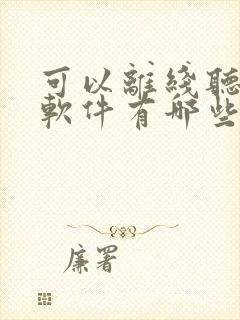 可以離綫聽
軟件有哪些
廉署